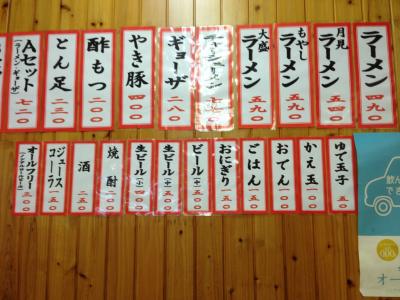 ラーメン 四九〇
月見ラーメン 五四〇
もやしラーメン 五九〇
大盛ラーメン 五九〇
チャーシューメン
ギョーザ 二八〇
やき豚 四〇〇
酢もつ 二〇〇
とん足
Aセット
(ラーメン・ギョーザ)
七二〇
ゆで玉子 五〇
かえ玉 一〇〇
おでん 一〇〇
ごはん 一五〇
おにぎり 一〇〇
ビール(中)
生ビール(中)
生ビール(小)
焼酎
酒
ジュース
コーラ 一五〇
オールフリー
(ノンアルコールビール)
三〇〇
飲ん
でき
オー